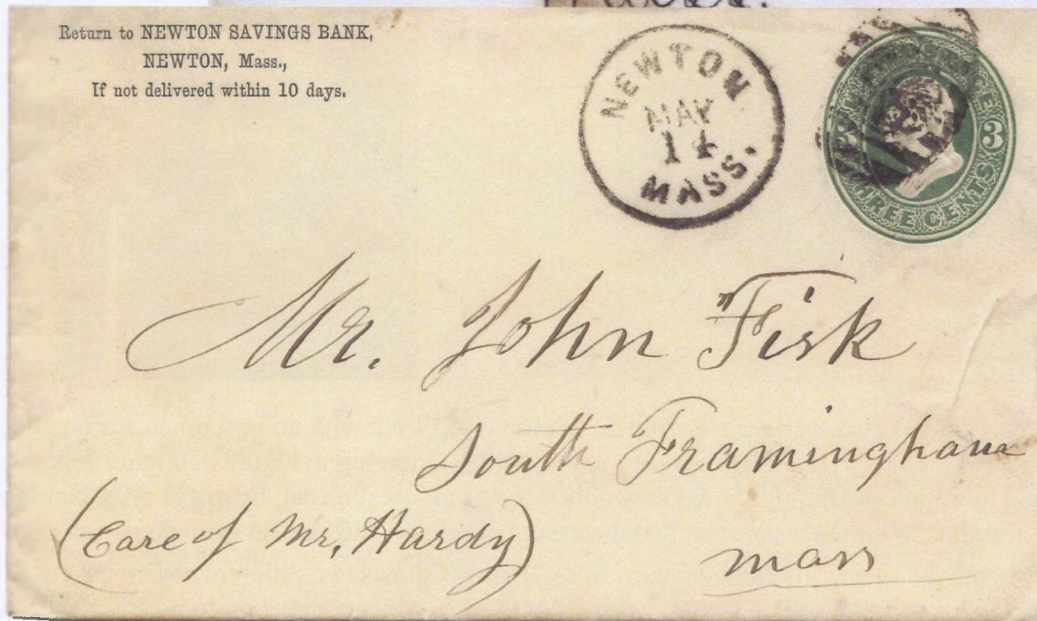 Mass.
Return to NEWTON SAVINGS BANK,
NEWTON, Mass.,
If not delivered within 10 days.
NEWTON
MAY
14
MASS.
3
THREE CENTS
Mr. John Fisk
South Framingham
(Care of Mr, Hardy)
Mass